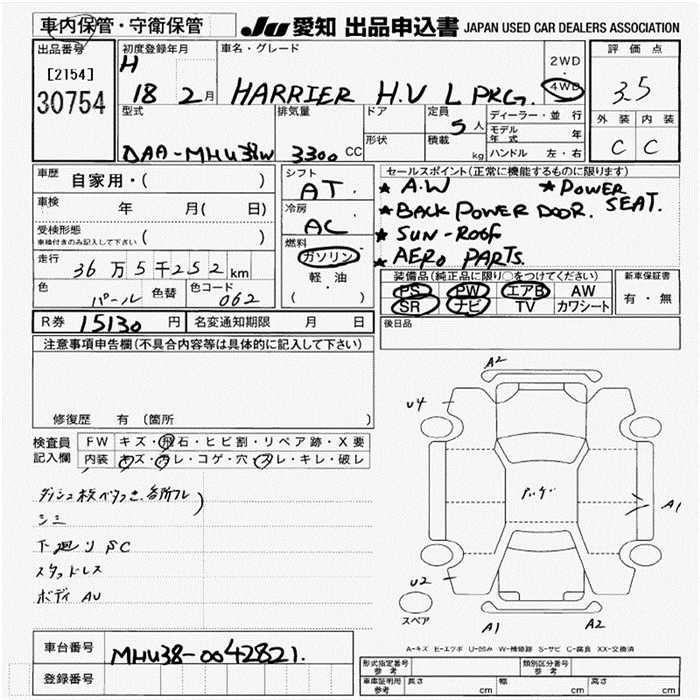 車内保管・守衛保管
JU 愛知 出品申込書 JAPAN USED CAR DEALERS ASSOCIATION
出品番号
[2154]
30754
初度登録年月
H
18 2月
車名・グレード
HARRIER H.V L PKG.
2WD
4WD
評価点
3.5
外装 内装
C C
型式
DAA-MHU38W
排気量
3300 CC
ドア
形状
定員
5人
積載
kg
ディーラー・並行
モデル年式 年
ハンドル 左・右
車歴 自家用・( )
車検 年 月( 日)
受検形態
車検付きのみ記入して下さい ( )
走行 36万5千252km
色 パール 色替 色コード 062
シフト
AT
冷房
AC
燃料
ガソリン
軽・油
( )
セールスポイント(正常に機能するものに限ります)
★ A.W ★ POWER SEAT.
★ BACK POWER DOOR.
★ SUN-ROOF
★ AERO PARTS.
装備品(純正品に限り○をつけてください)
PS PW エアB AW
SR ナビ TV カワシート
新車保証書
有・無
後日品
R券 15130円 名変通知期限 月 日
注意事項申告欄(不具合内容等は具体的に記入して下さい)
修復歴 有 (箇所 )
検査員
記入欄
FW キズ・飛石・ヒビ割・リペア跡・X要
内装 キズ・汚レ・コゲ・穴・スレ・キレ・破レ
ダッシュ枝ベタつき、各所フレ
シミ
下廻りSC
スタッドレス
ボディAU
A2
U4
A1
U2
スペア
A1
A2
A-キズ E-エクボ U-凹み W-補修跡 S-サビ C-腐食 XX-交換済
車台番号 MHU38-0042821.
登録番号
形式指定番号
参考
類別区分番号
参考
車庫証明用
参考
長さ cm 幅 cm 高さ cm